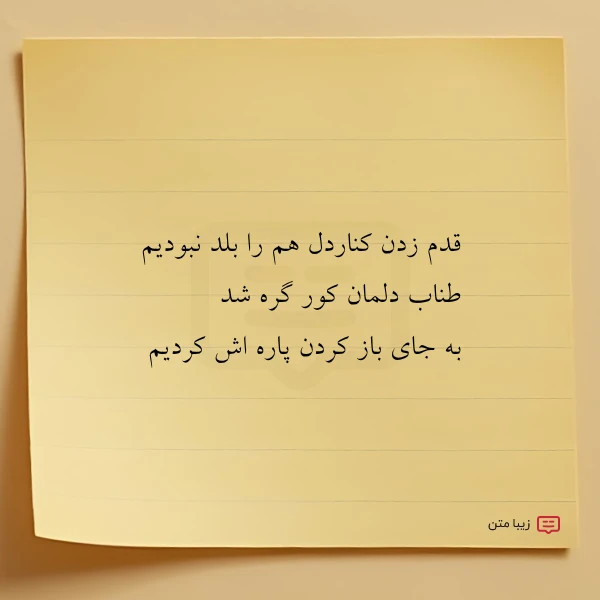 قدم زدن کناردل هم را بلد نبودیم
طناب دلمان کور گره شد
به جای باز کردن پاره اش کردیم
زیبا متن